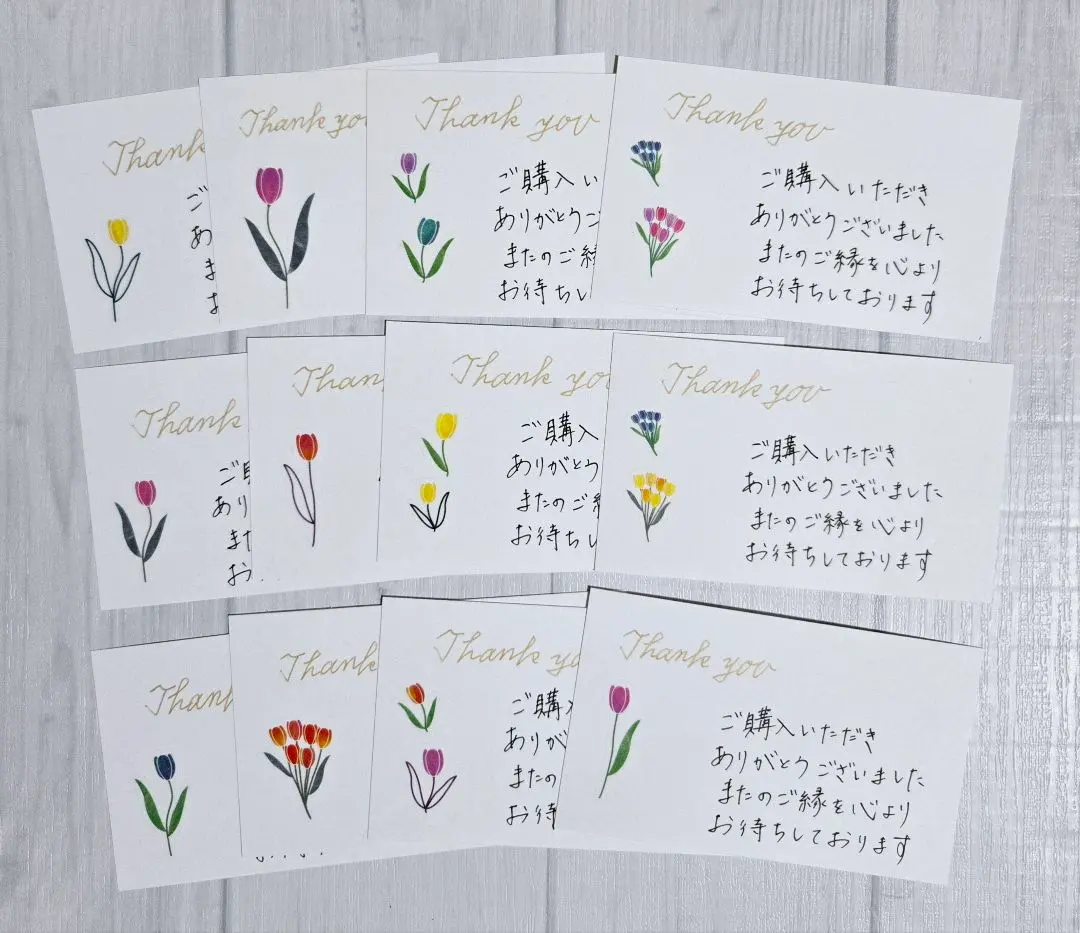 Thank
ご
あ
ま
お
Thank you
Thank you
ご購入い
ありがとうご
またのご縁
お待ちし
Thank you
ご購入いただき
ありがとうございました
またのご縁を心より
お待ちしております
Thank
ご購
ありが
また
お
Thank
Thank you
ご購入
ありがとう
またのご縁
お待ちし
Thank you
ご購入いただき
ありがとうございました
またのご縁を心より
お待ちしております
Thank
Thank
Thank you
ご購入
ありが
またの
お待
Thank you
ご購入いただき
ありがとうございました
またのご縁を心より
お待ちしております